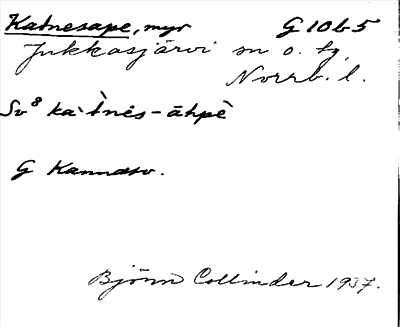 Katnesape, myr G 10 b 5
Jukkasjärvi sn o. tg,
Norrb. l.
Sv⁸ ka·̀tnės-āhpė̀
G Kannasv.
Björn Collinder 1937.